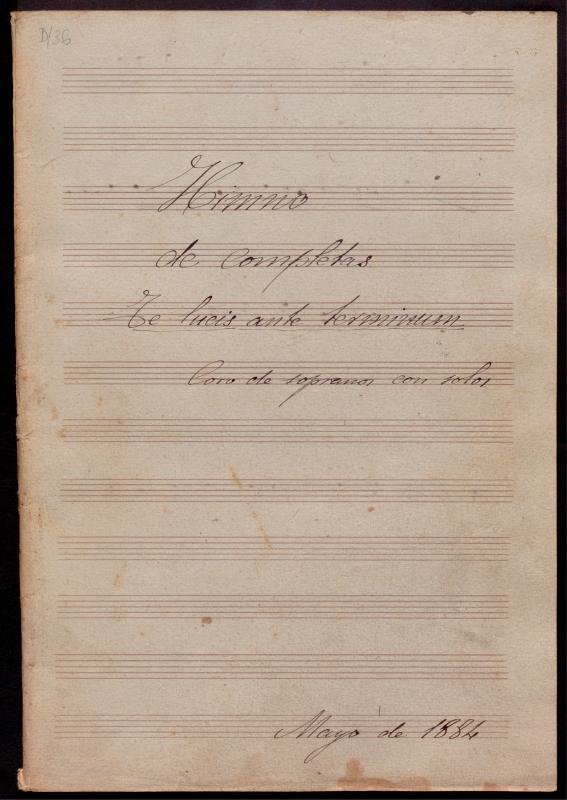 D/36
Himno
de completas
Te lucis ante terminum
Coro de sopranos con solos
Mayo de 1884